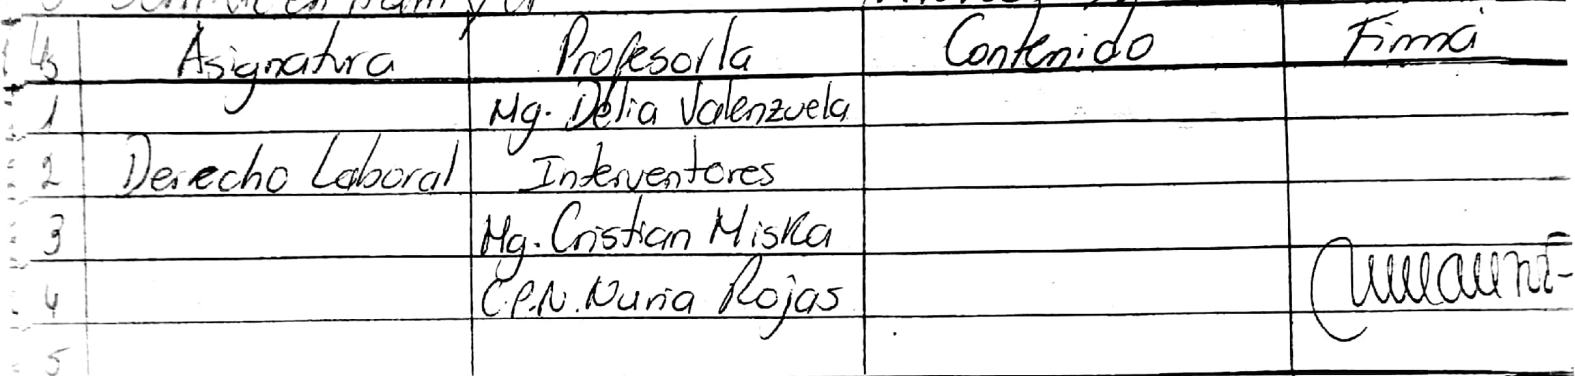 Hs Asignatura Profesor/a Contenido Firma
1 Mg. Delia Valenzuela
2 Derecho Laboral Interventores
3 Mg. Cristian Miska
4 C.P.N. Nuria Rojas
5